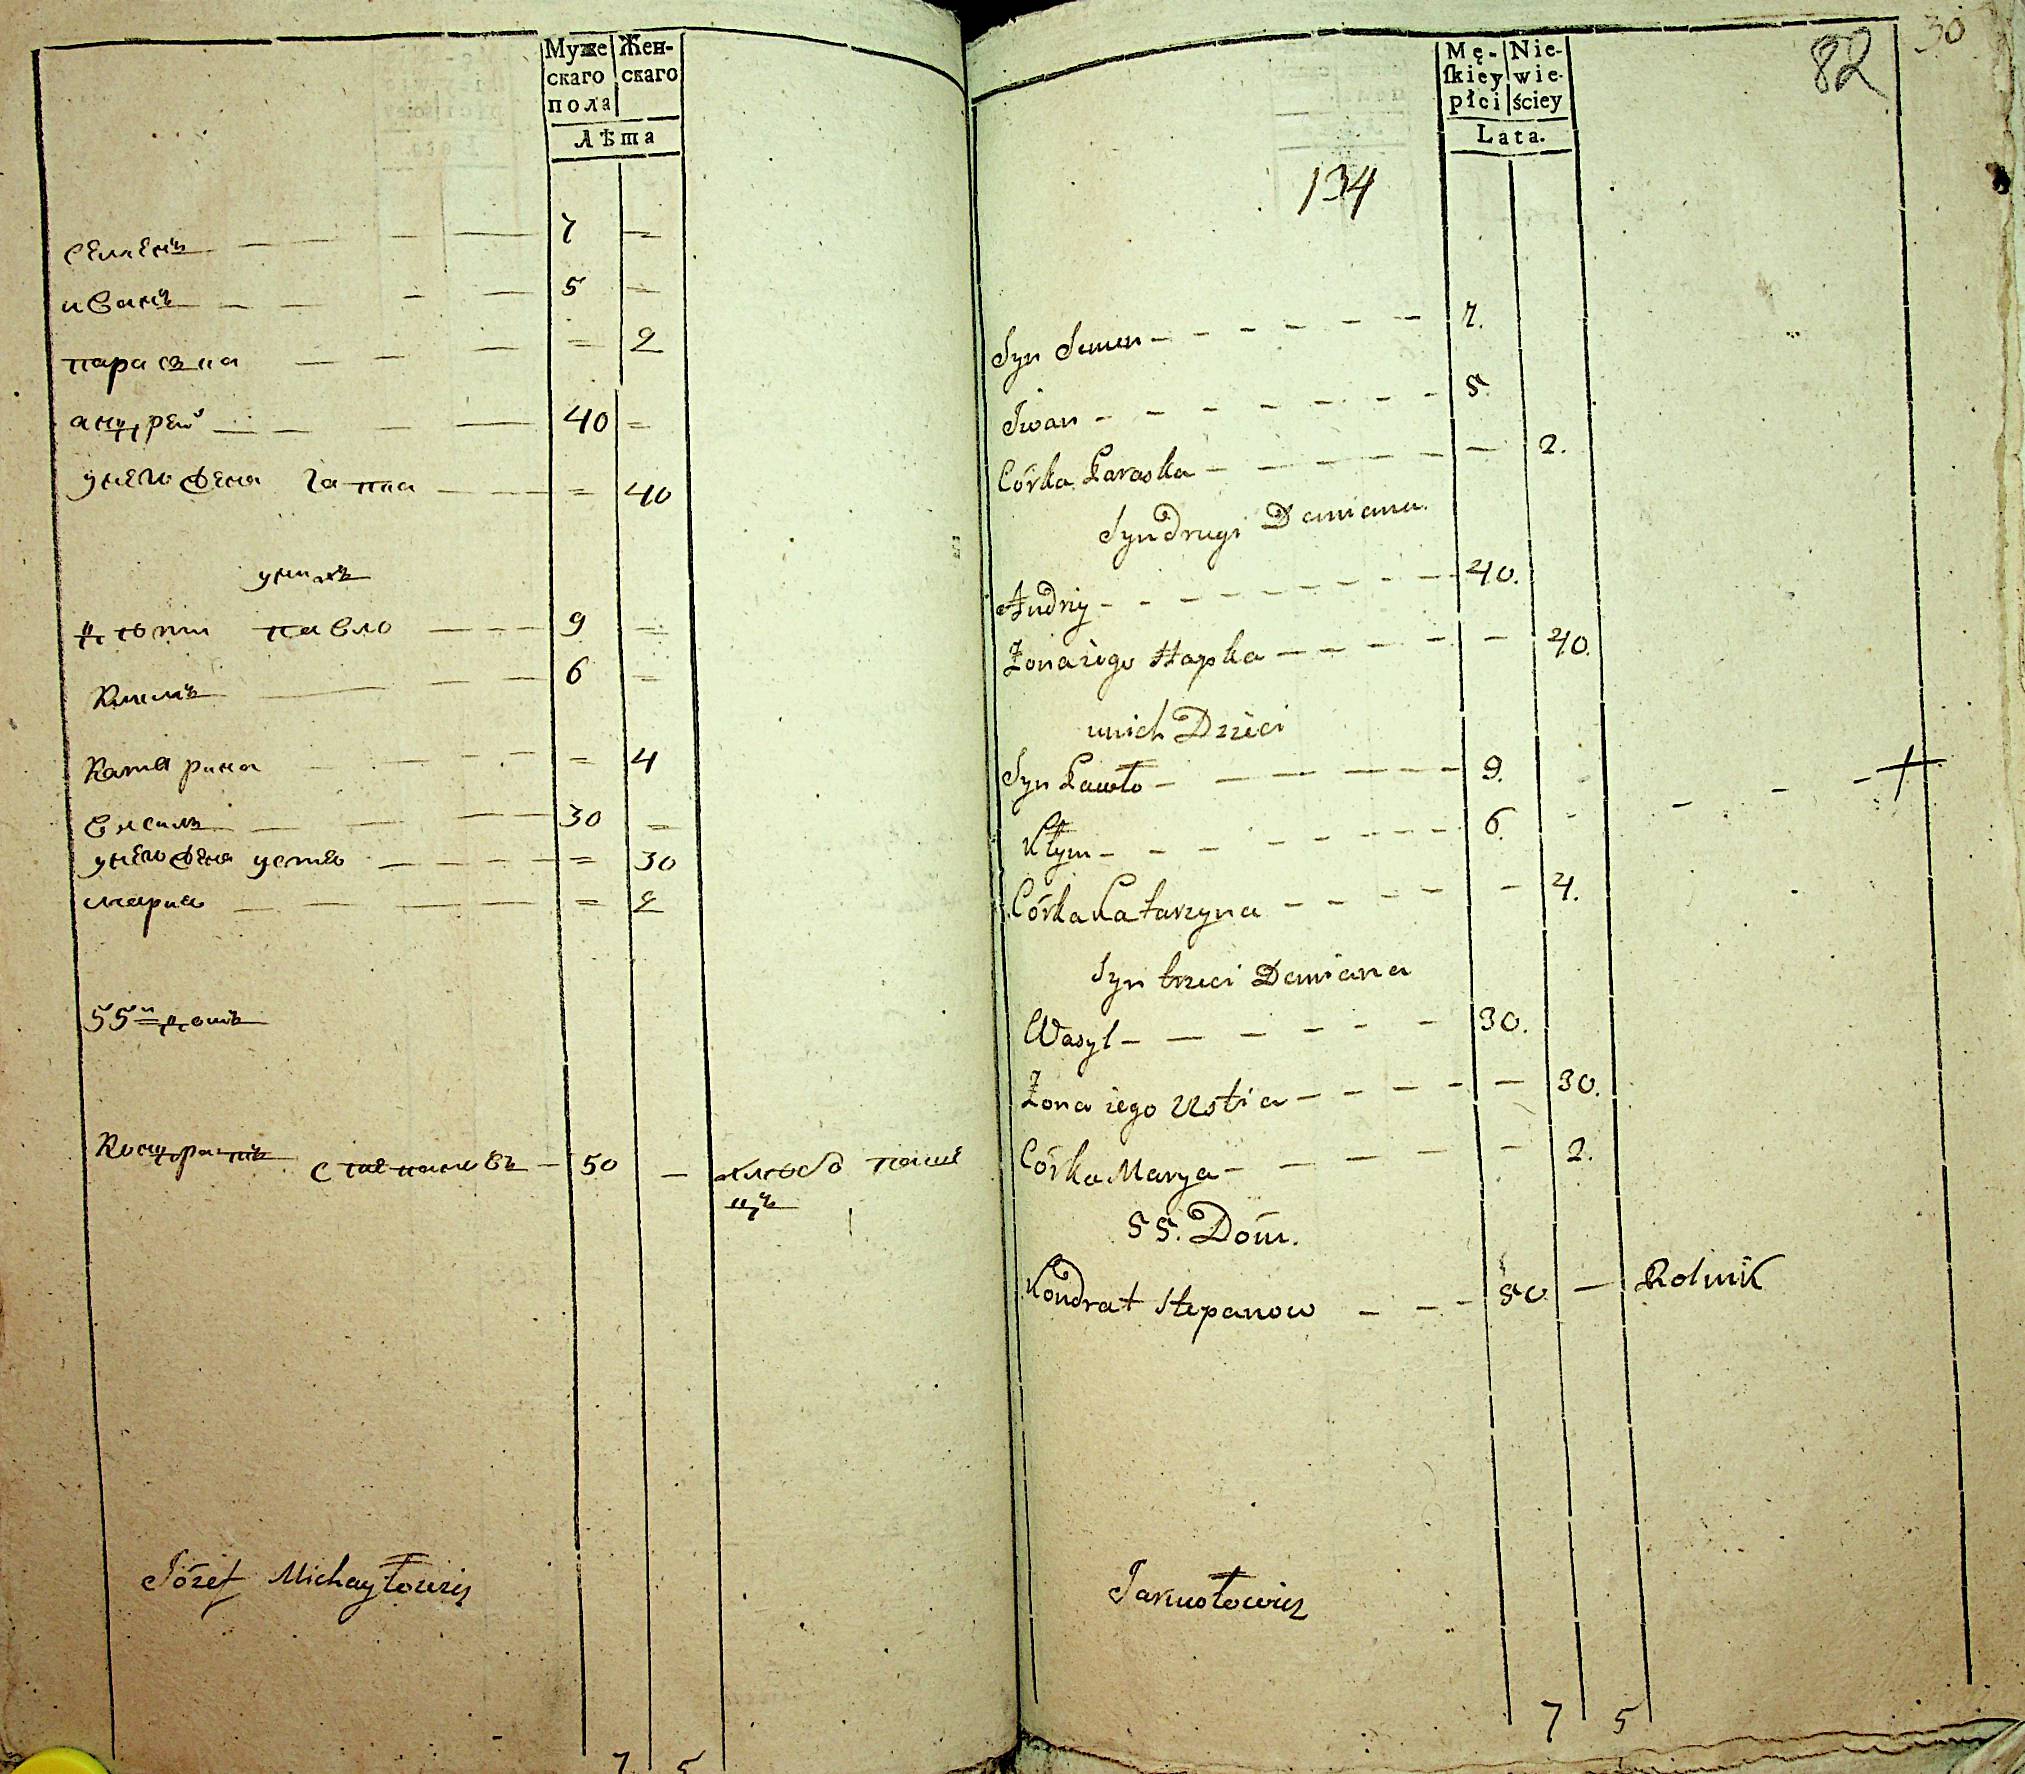 Муже Жен-
скаго скаго
пола
Лѣта
семенъ — — — — 7 =
иванъ — — — — 5 =
параска — — — = 2
андрей — — — — 40 =
унего жена гапка — — — = 40
унихъ
дѣти павло — — — 9 =
климъ — — — — 6 =
катерина — — — — = 4
василь — — — — 30 =
унего жена устя — — — — = 30
мария — — — — = 2
55й домъ
кондратъ степановъ — 50 — хлѣбо паше
цъ
Józef Michayłowicz
7 5
30
82
Mę- Nie-
ſkiey wie-
płci ściey
Lata.
134
Syn Semen — — — — — — 7.
Iwan — — — — — — — 5.
Córka Paraska — — — — — — 2.
Syn Drugi Damiana.
Andriy — — — — — — — 40.
Żona iego Hapka — — — — — — 40.
unich Dzieci
Syn Pawło — — — — — 9.
Kłym — — — — — — — 6.
Córka Katarzyna — — — — — 4.
Syn trzeci Damiana
Wasyl — — — — — 30.
Żona iego Ustia — — — — — 30.
Córka Marya — — — — — 2.
55. Dom.
Kondrat Stepanow — — — 50 — Rolnik
7 5